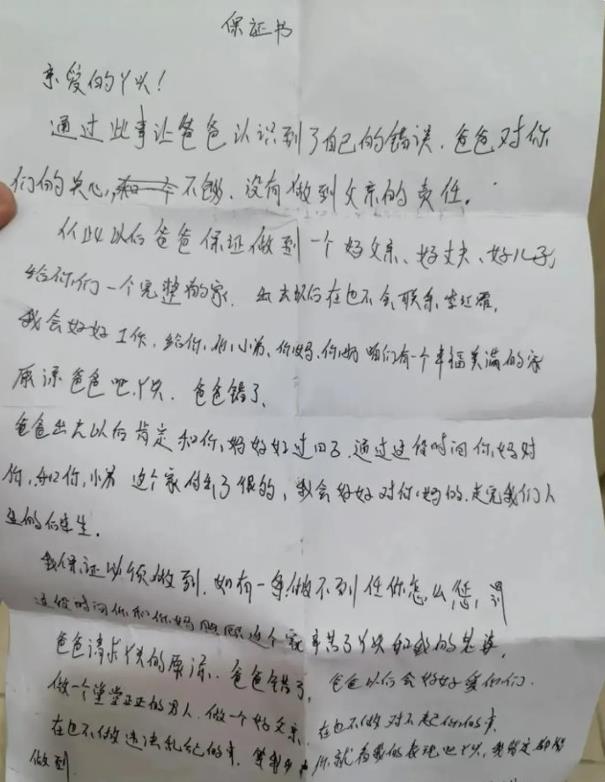 保证书
亲爱的丫头!
通过此事让爸爸认识到了自己的错误.爸爸对你
们的关心,不够.没有做到父亲的责任.
从此以后爸爸保证做到一个好父亲、好丈夫、好儿子,
给你们一个完整的家.出去以后在也不会联系李红
我会好好工作,给你,和小弟、你妈、咱们有一个幸福美满的家
原谅爸爸吧丫头.爸爸错了、
爸爸出去以后肯定和你妈好好过日子.通过这段时间你妈对
你,和你小弟 这个家付出了很多,我会好好对你妈的.走完我们人
生的
我保证必须做到.如有一条做不到任你怎么
这段时间你和你妈照顾这个家辛苦了丫头
爸爸请求丫头的原谅.爸爸错了,爸爸以后会好好爱你们.
做一个堂堂正正的男人.做一个好父亲.在也不做对不起你们的事
在也不做违法乱纪的事.你就看我的表现吧丫头,我肯定
做到